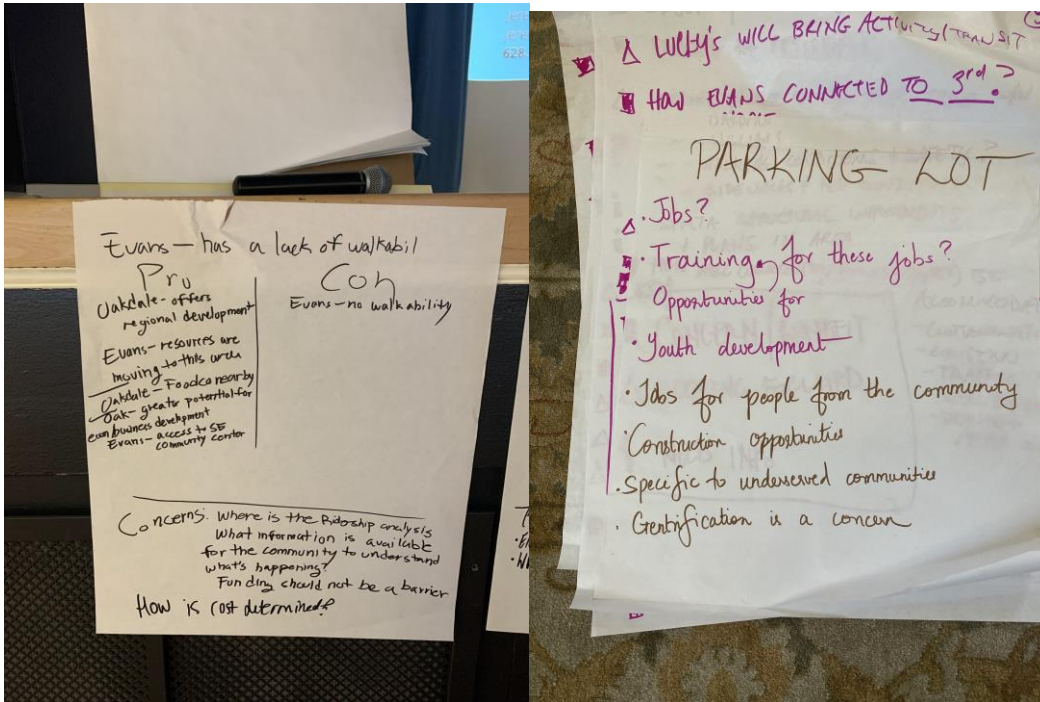 628
Evans - has a lack of walkabil
Pro
Oakdale - offers
regional development
Evans - resources are
moving to this area
Oakdale - Foodco nearby
Oak - greater potential for
econ/business development
Evans - access to SE
community center
Con
Evans - no walkability
Concerns: Where is the Ridership analysis
What information is available
for the community to understand
what's happening?
Funding should not be a barrier
How is cost determined?
Δ Lucky's WILL BRING ACTIVITY/TRANSIT
HOW EVANS CONNECTED TO 3rd?
PARKING LOT
Δ · Jobs?
· Training, for these jobs?
Opportunities for
· Youth development
· Jobs for people from the community
· Construction opportunities
· Specific to underserved communities
· Gentrification is a concern